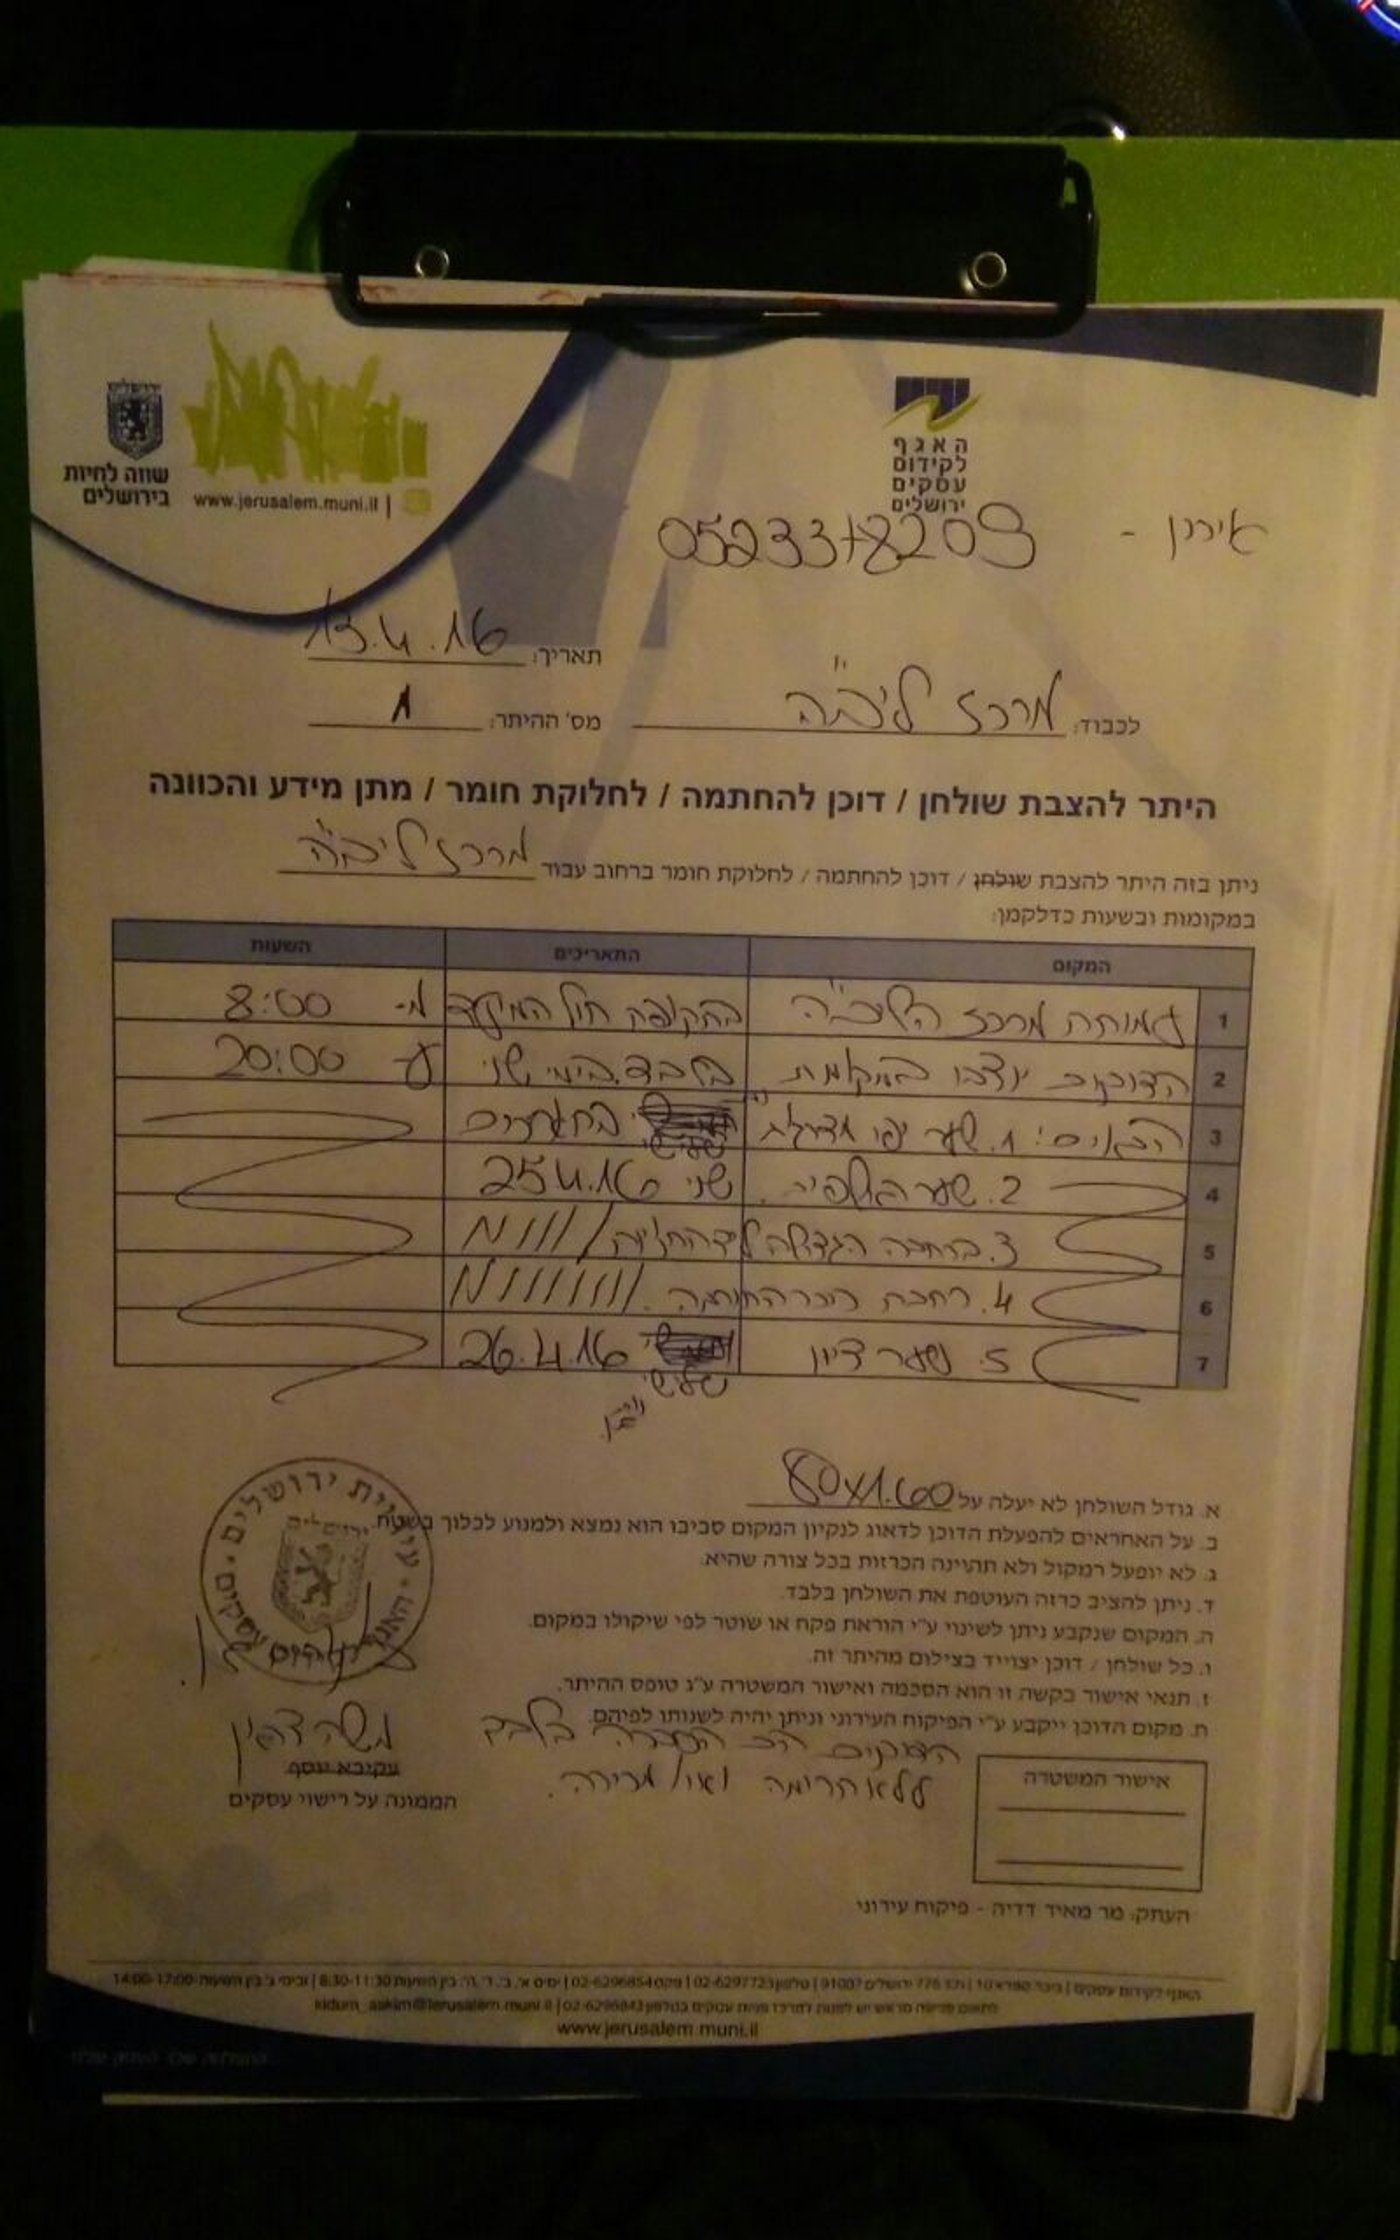 ירושלים
שווה לחיות
בירושלים
www.jerusalem.muni.il
האגף
לקידום
עסקים
ירושלים
אירן -
תאריך: 13.4.16
לכבוד: מרכז ליב"ה
מס' ההיתר: 1
היתר להצבת שולחן / דוכן להחתמה / לחלוקת חומר / מתן מידע והכוונה
ניתן בזה היתר להצבת שולחן / דוכן להחתמה / לחלוקת חומר ברחוב עבור מרכז ליב"ה
במקומות ובשעות כדלקמן:
המקום התאריכים השעות
1 עמותת מרכז הליב"ה בתקופת חול המועד מ- 8:00
2 הדוכנים יוצבו במקומות בלבד. בימי שני עד 20:00
3 הבאים: 1. שער יפו שלישי בתאריכים
4 2. שער האשפות. שני 25.4.16
5 3. ברחבה הגדולה
6 4. רחבת
7 5. שער ציון שלישי 26.4.16
א. גודל השולחן לא יעלה על 80x1.60
ב. על האחראים להפעלת הדוכן לדאוג לנקיון המקום סביבו הוא נמצא ולמנוע לכלוך בשטח
ג. לא יופעל רמקול ולא תהיינה הכרזות בכל צורה שהיא.
ד. ניתן להציב כרזה העוטפת את השולחן בלבד.
ה. המקום שנקבע ניתן לשינוי ע"י הוראת פקח או שוטר לפי שיקולו במקום.
ו. כל שולחן / דוכן יצוייד בצילום מהיתר זה.
ז. תנאי אישור בקשה זו הוא הסכמה ואישור המשטרה ע"ג טופס ההיתר.
ח. מקום הדוכן ייקבע ע"י הפיקוח העירוני וניתן יהיה לשנותו לפיהם.
הדוכנים הם הסברה בלבד
ללא תרומה ו/או מכירה.
עיריית ירושלים
ירושלים
משה
עקיבא יוסף
הממונה על רישוי עסקים
אישור המשטרה
העתק: מר מאיר דדיה - פיקוח עירוני
האגף לקידום עסקים | כיכר ספרא 10 | ת.ד. 775 ירושלים 91007 | טלפון 02-6297723 | פקס 02-6296854 | ימים א', ב', ד', ה': בין השעות 8:30-11:30 | ובימי ג' בין השעות 14:00-17:00
לתאום פגישה מראש יש לפנות למרכז פניות עסקים בטלפון 02-6296843 | kidum_askim@jerusalem.muni.il
www.jerusalem.muni.il